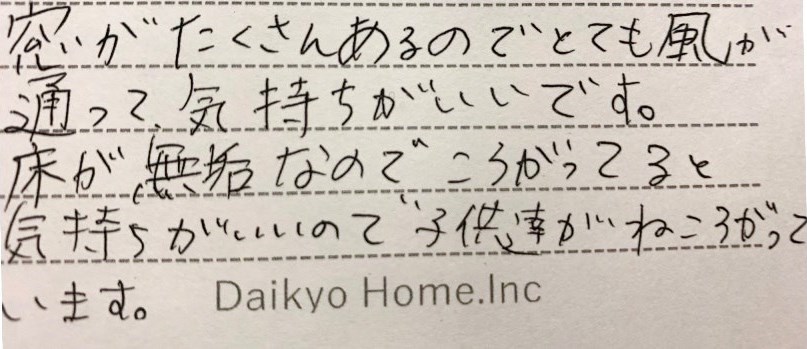 窓がたくさんあるのでとても風が
通って、気持ちがいいです。
床が無垢なのでころがってると
気持ちがいいので子供達がねころがって
います。
Daikyo Home.Inc